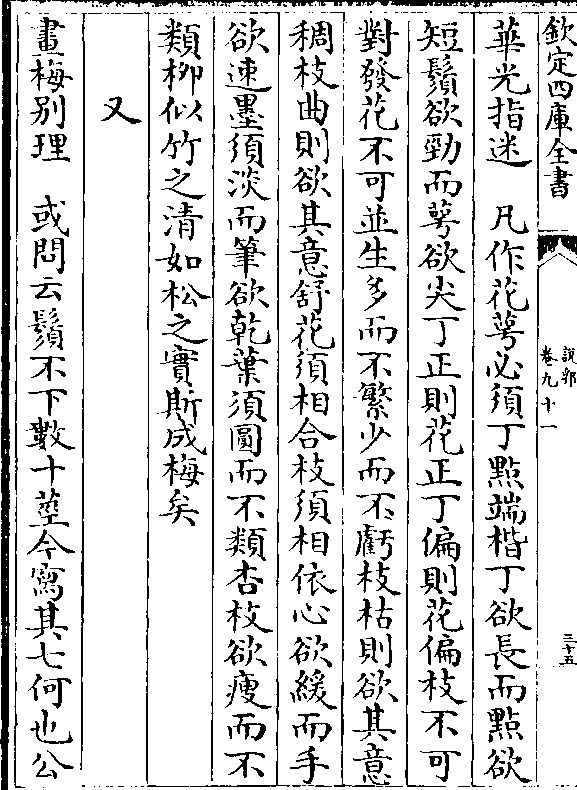 欽定四庫全書
說郛
卷九十一
三十五
華光指迷　凡作花萼必須丁點端楷丁欲長而點欲
短鬚欲勁而萼欲尖丁正則花正丁偏則花偏枝不可
對發花不可並生多而不繁少而不虧枝枯則欲其意
稠枝曲則欲其意舒花須相合枝須相依心欲緩而手
欲速墨須淡而筆欲乾葉須圓而不類杏枝欲瘦而不
類栁似竹之清如松之實斯成梅矣
又
畫梅别理　或問云鬚不下數十莖今寫其七何也公